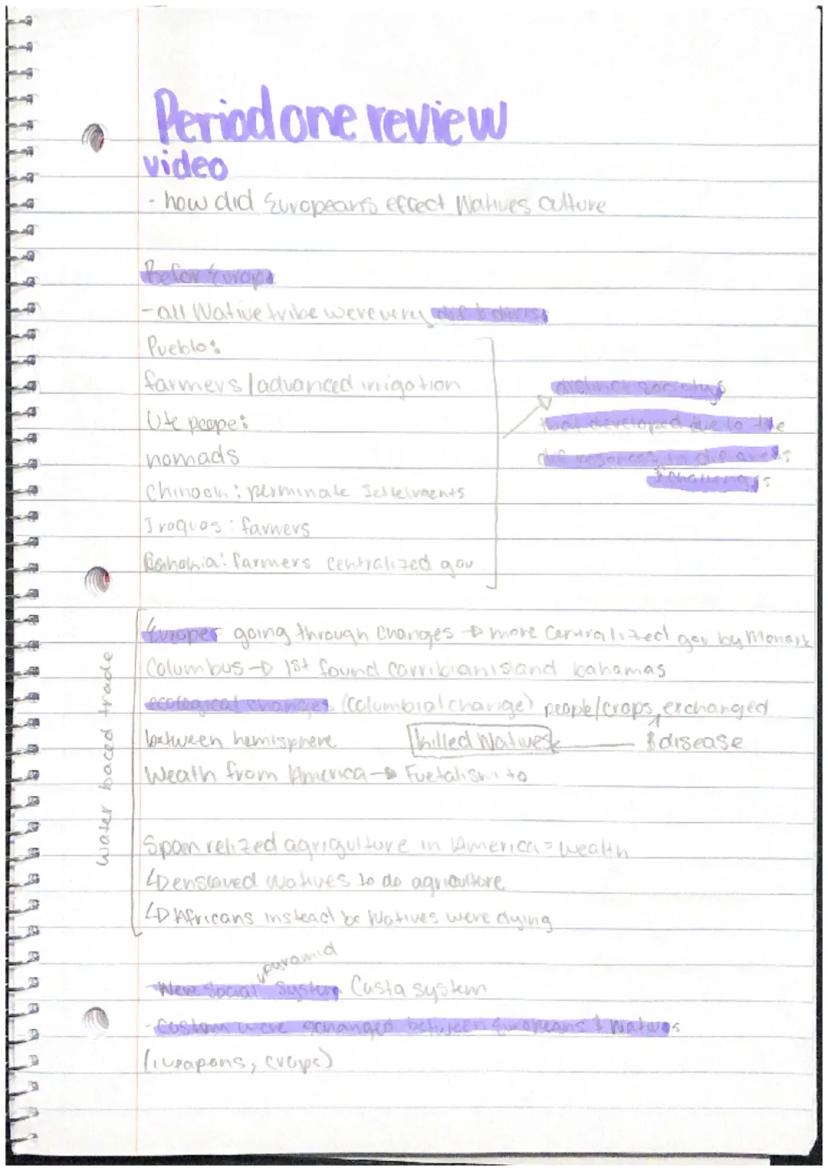 Period one review
video
- how did Europeans effect Natives culture
Befor Europe
- all Native tribe were very dif & divers
Pueblo:
farmers / advanced irigation
Ute peope:
nomads
Chinook: perminate settelments
Iroquos: farmers
Cahokia: farmers centralized gov
distinct societys
that developed due to the
dif resorces in dif areas
& challenges
Water baced trade
Europe going through changes → more centralized gov by Monark
Columbus → 1st found carribian island bahamas
ecological changes (columbial change) people/crops exchanged
between hemisphere killed Natives & disease
Weath from America → Fuetalism to
Spain relized agrigulture in America = wealth
↳ enslaved Natives to do agriculture
↳ Africans instead bc Natives were dying
pyramid
New Social System Casta system
- Custom were exhanged between Europeans & Natives
(weapons, crops)